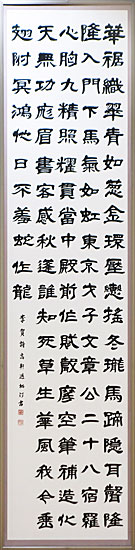 華裾織翠青如葱金環壓轡搖冬瓏馬蹄隱耳聲隆
隆入門下馬氣如虹東京才子文章公二十八宿羅
心胸九精照耀貫當中殿前作賦聲摩空筆補造化
天無功厖眉書客感秋蓬誰知死草生華風我今垂
翅附冥鴻他日不羞蛇作龍
李賀詩高軒過